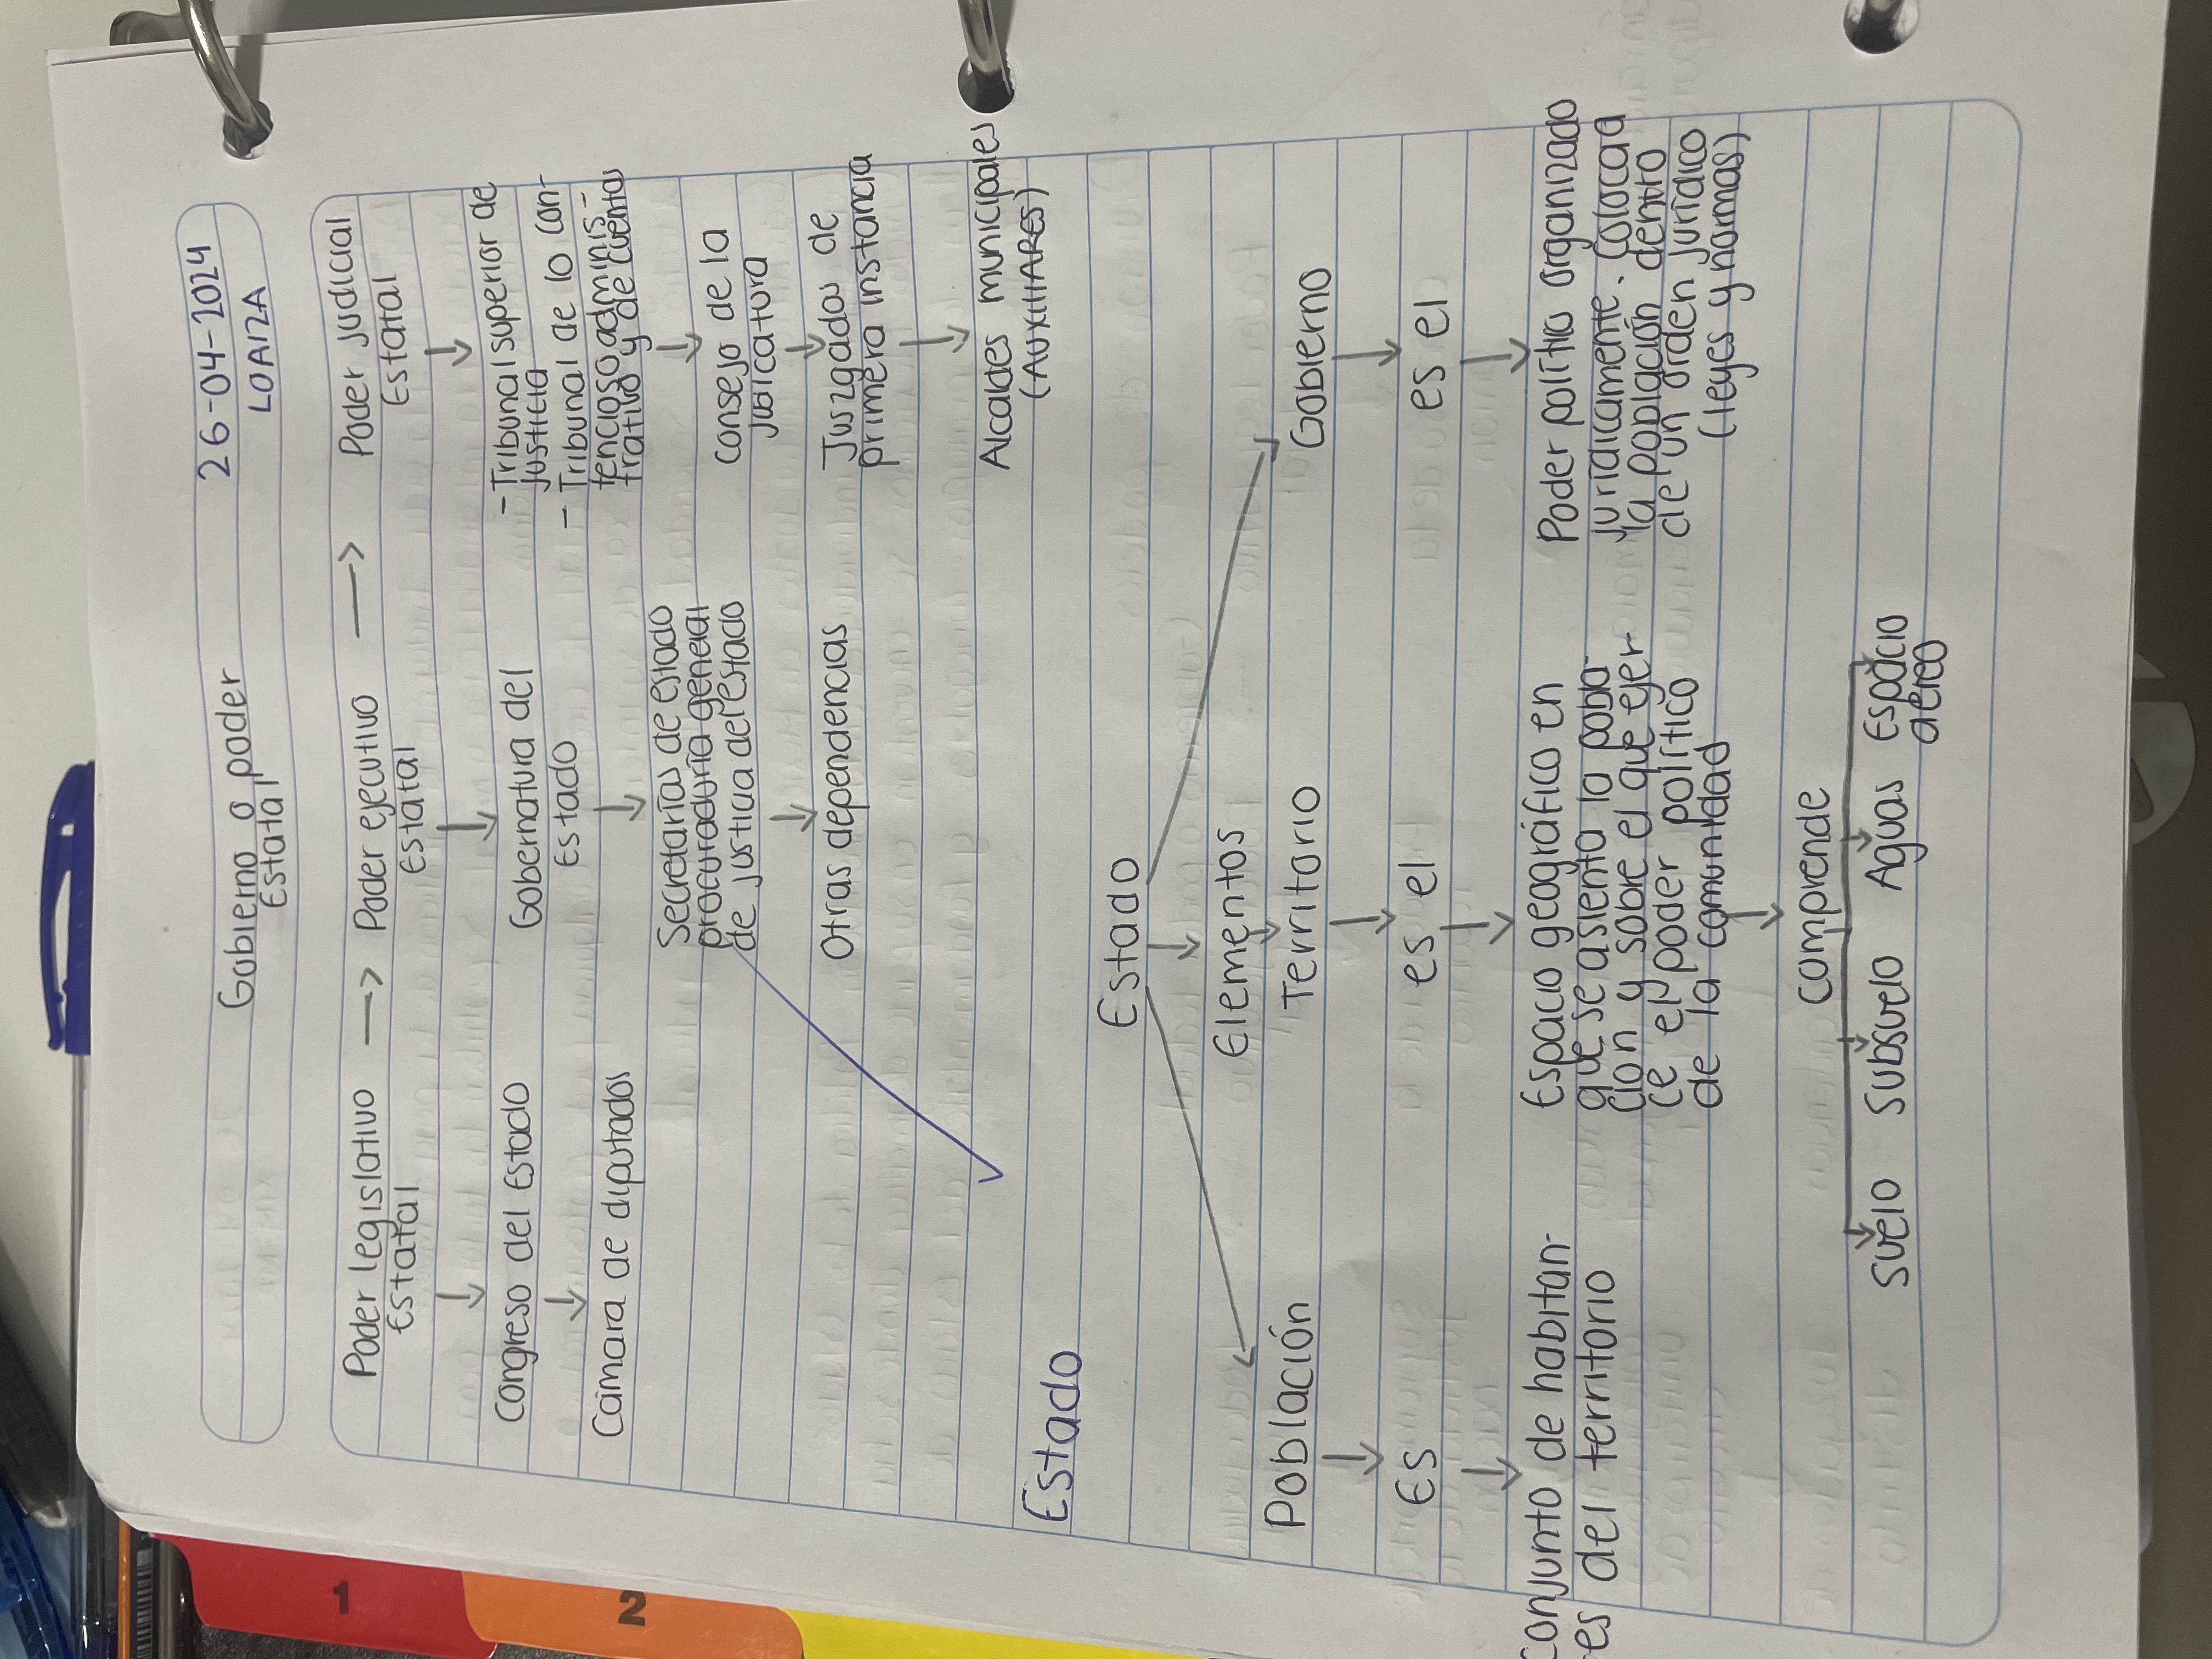 26-04-2024
LOAIZA
Gobierno o poder
Estatal
Poder legislativo → Poder ejecutivo → Poder judicial
Estatal Estatal Estatal
Congreso del Estado
Cámara de diputados
Gobernatura del
Estado
Secretarías de estado
procuraduría general
de justicia del estado
Otras dependencias
- Tribunal superior de
justicia
- Tribunal de lo con-
tencioso adminis-
trativo y de cuentas
consejo de la
judicatura
Juszgados de
primera instancia
Alcaldes municipales
(AUXILIARES)
Estado
Estado
Elementos
Población Territorio Gobierno
Es es el es el
Conjunto de habitan-
es del territorio
Espacio geográfico en
que se asienta la pobla-
ción y sobre el que ejer-
ce el poder político
de la comunidad
Poder político organizado
juridicamente. Coloca a
la población dentro
de un orden jurídico
(leyes y normas)
comprende
Suelo Subsuelo Aguas Espacio
aéreo
1
2